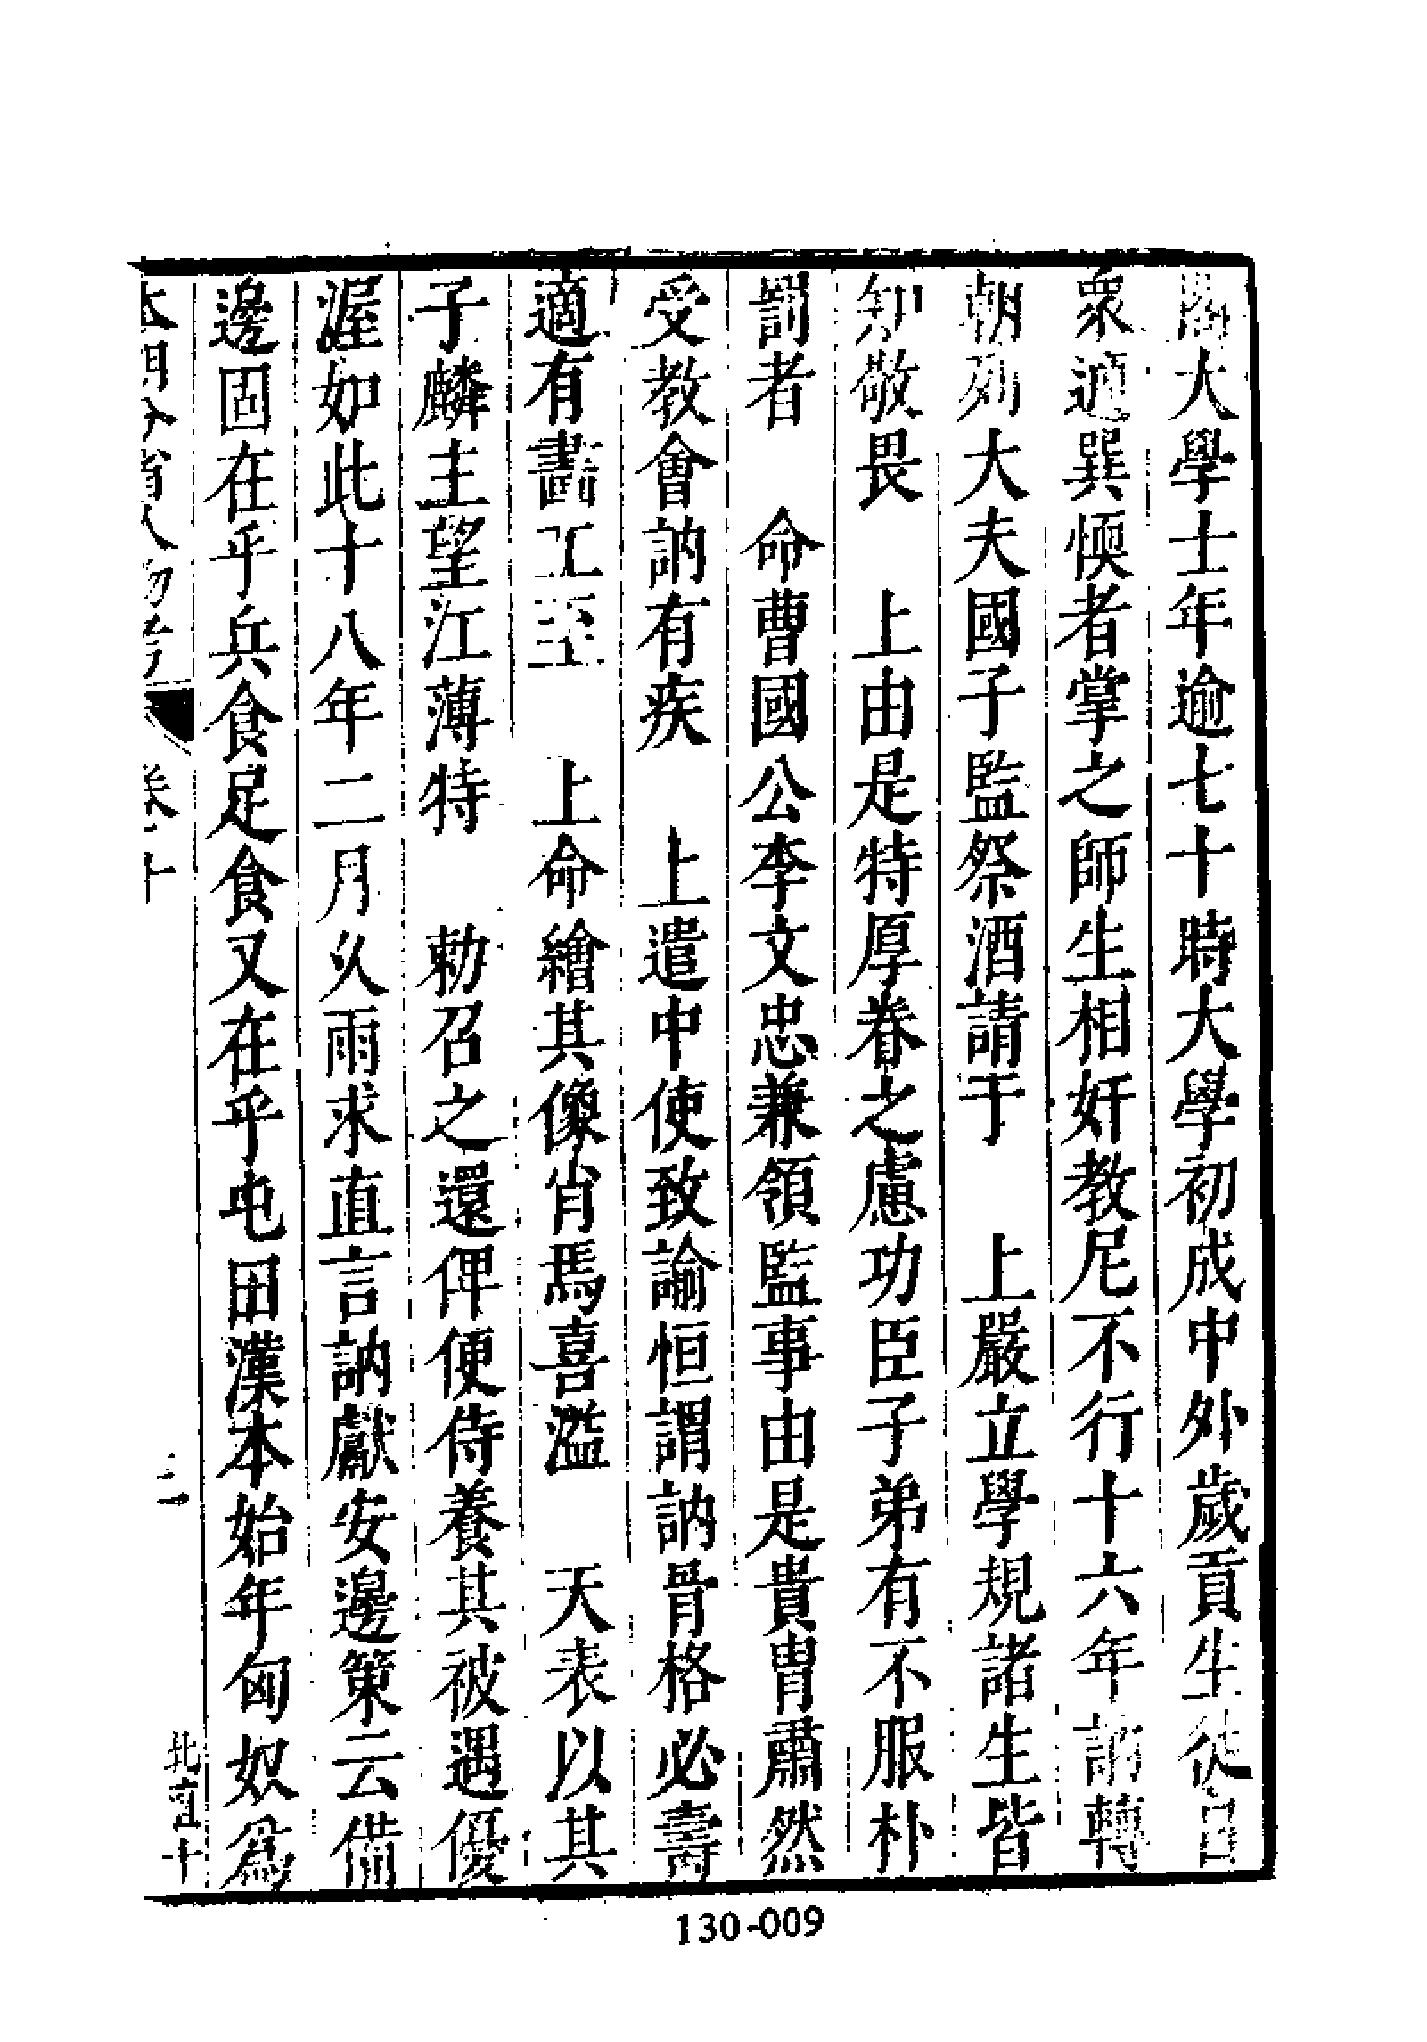 閣大學士年逾七十時大學初成中外歲貢生徒日
衆適巽愞者掌之師生相奸教尼不行十六年訥轉
朝列大夫國子監祭酒請于　上嚴立學規諸生皆
知敬畏　上由是特厚眷之慮功臣子弟有不服朴
罰者　命曹國公李文忠兼領監事由是貴胄肅然
受教會訥有疾　上遣中使致諭恒謂訥骨格必壽
適有畵工至　上命繪其像肖焉喜溢　天表以其
子麟主望江薄特　勅召之還俾便侍養其被遇優
渥如此十八年二月久雨求直言訥獻安邊策云備
邊固在乎兵食足食又在乎屯田漢本始年匈奴爲
本朝分省人物考　卷十　二　北直十
130-009